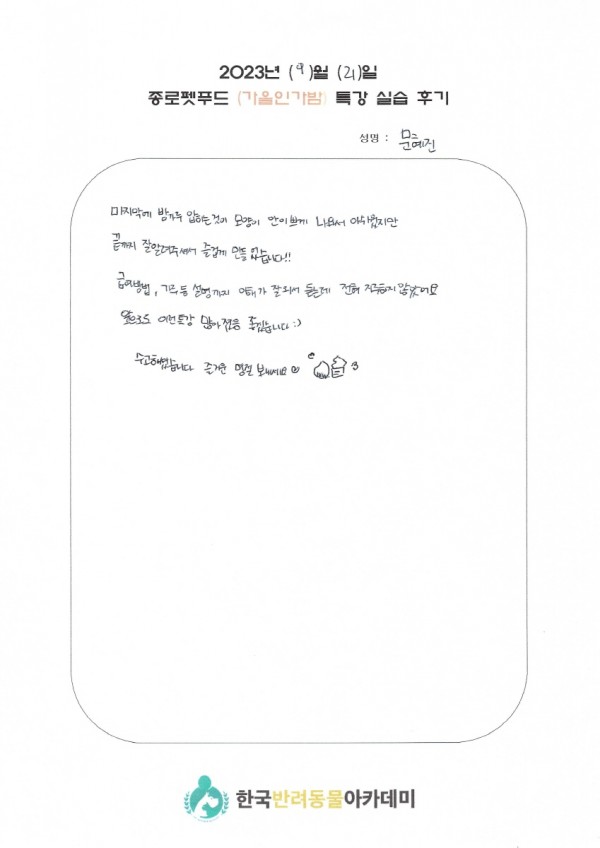 2023년 (9)월 (21)일
종로펫푸드 (가을인가밤) 특강 실습 후기
성명 : 문혜진
마지막에 밤가루 입히는것이 모양이 안이쁘게 나와서 아쉬웠지만
끝까지 잘알려주셔서 즐겁게 만들었습니다!!
급여방법, 기주등 설명까지 이해가 잘되서 듣는데 전혀 지루하지 않았어요
앞으로도 이런특강 많아졌음 좋겠습니다 :)
수고하셨습니다 즐거운 명절 보내세요
한국반려동물아카데미